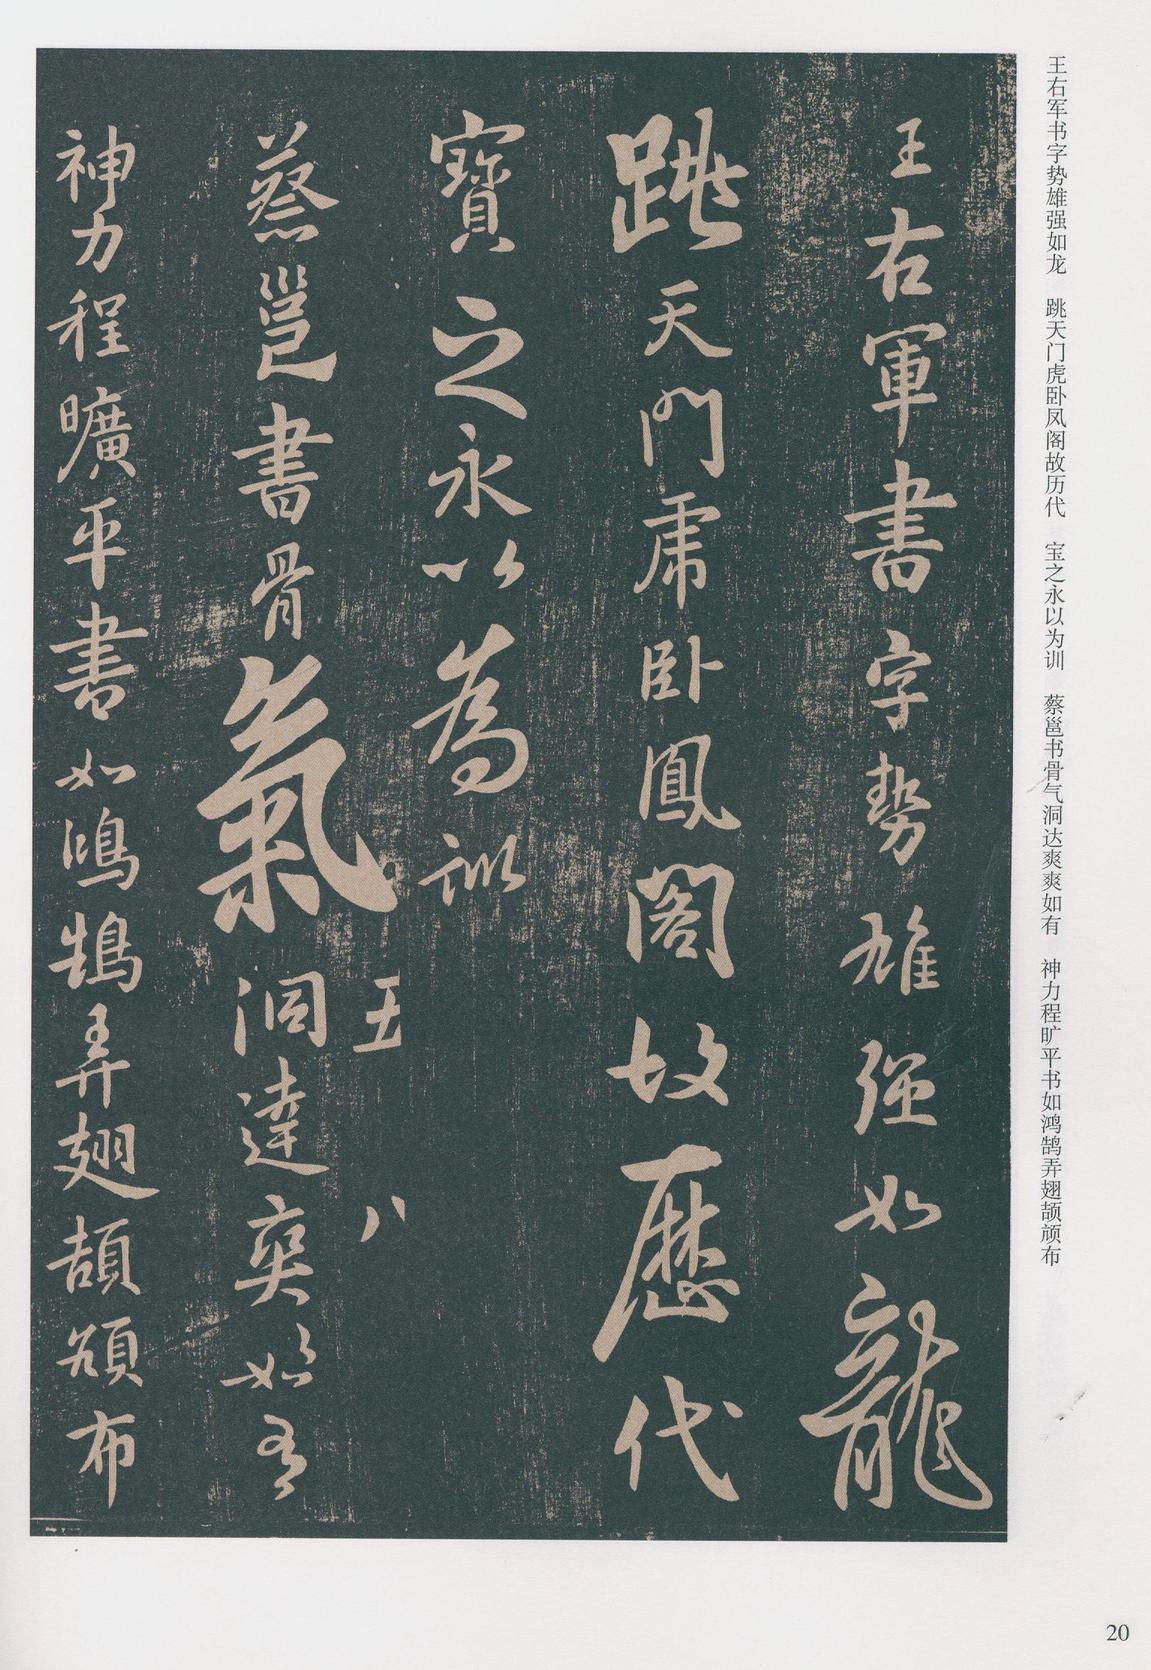 王右軍書字勢雄强如龍
跳天門虎卧鳳閣故歷代
寶之永以為訓
五
八
蔡邕書骨氣洞達爽如有
神力程曠平書如鴻鵠弄翅頡頏布
王右军书字势雄强如龙　跳天门虎卧凤阁故历代　宝之永以为训　蔡邕书骨气洞达爽爽如有　神力程旷平书如鸿鹄弄翅颉颃布
20